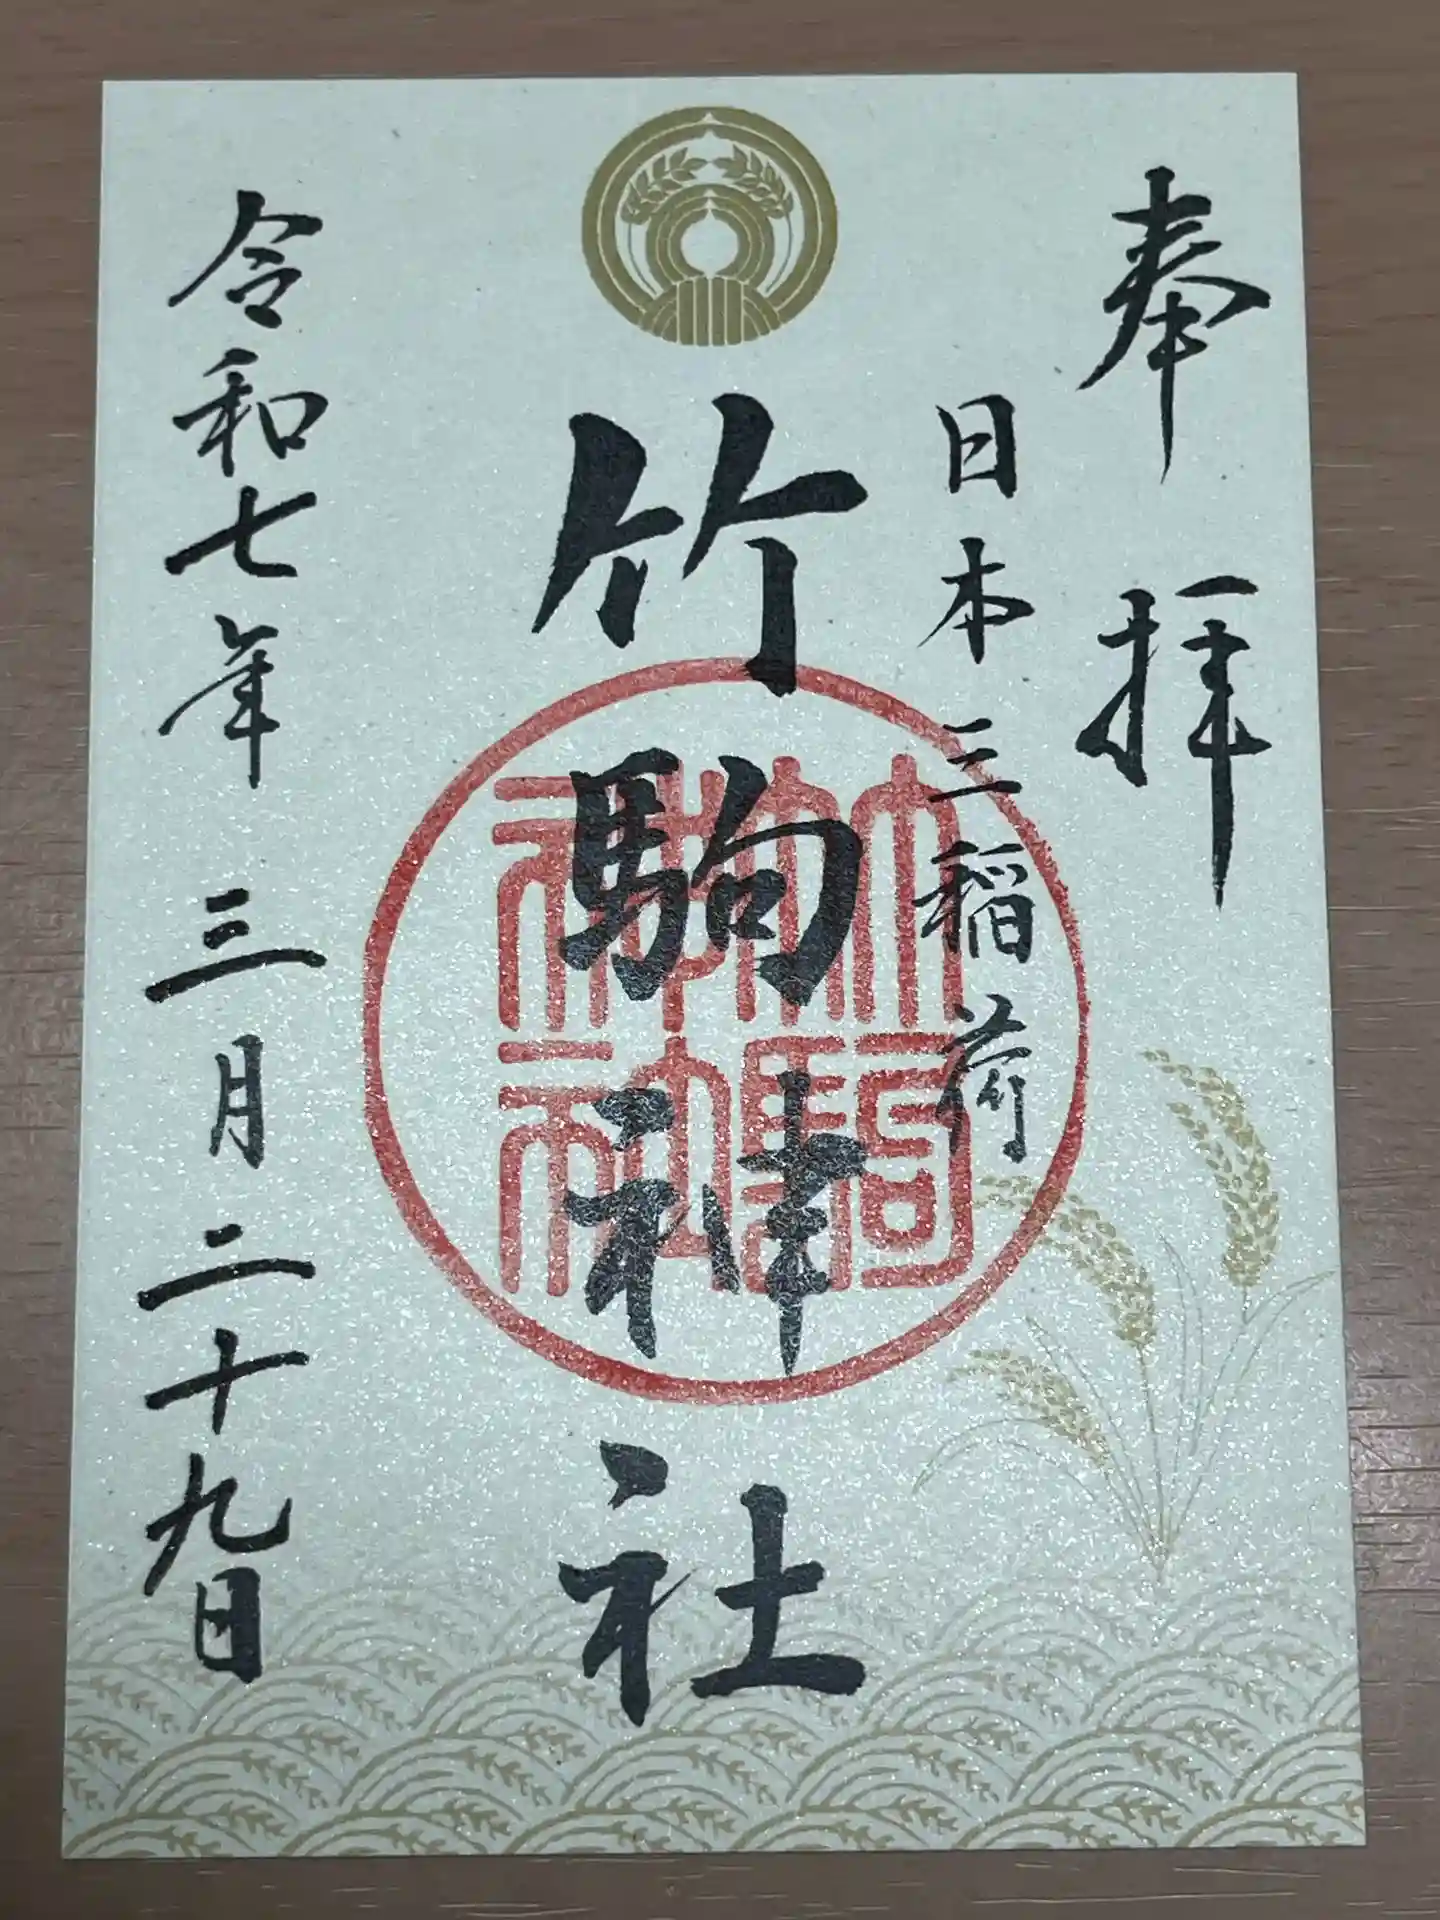 奉拝
日本三稲荷
竹駒神社
竹駒神社
令和七年三月二十九日